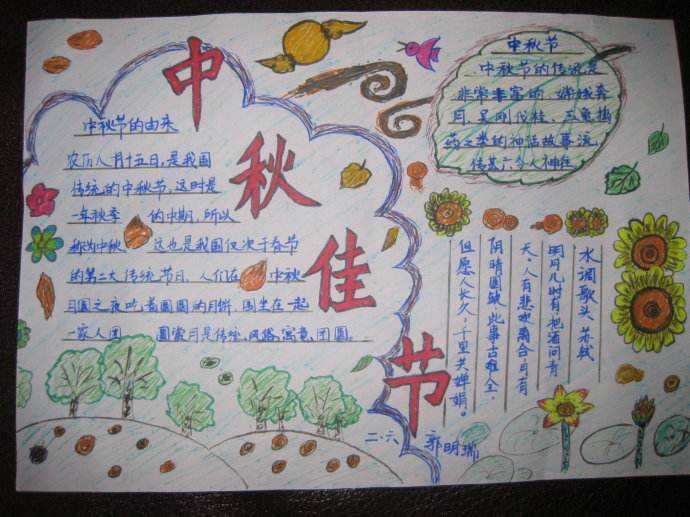 中秋佳节
中秋节的由来
农历八月十五日，是我国
传统的中秋节，这时是
一年秋季 的中期，所以
称为中秋。 这也是我国仅次于春节
的第二大传统节日，人们在 中秋
月圆之夜吃着圆圆的月饼，围坐在一起
一家人团 圆赏月是传统风俗，寓意团圆。
中秋节
中秋节的传说是
非常丰富的，嫦娥奔
月，吴刚伐桂，玉兔捣
药之类的神话故事流
传甚
水调歌头 苏轼
明月几时有把酒问青
天，人有悲欢离合月有
阴晴圆缺此事古难全，
但愿人长久，千里共婵娟。
二.六 郭明瑞